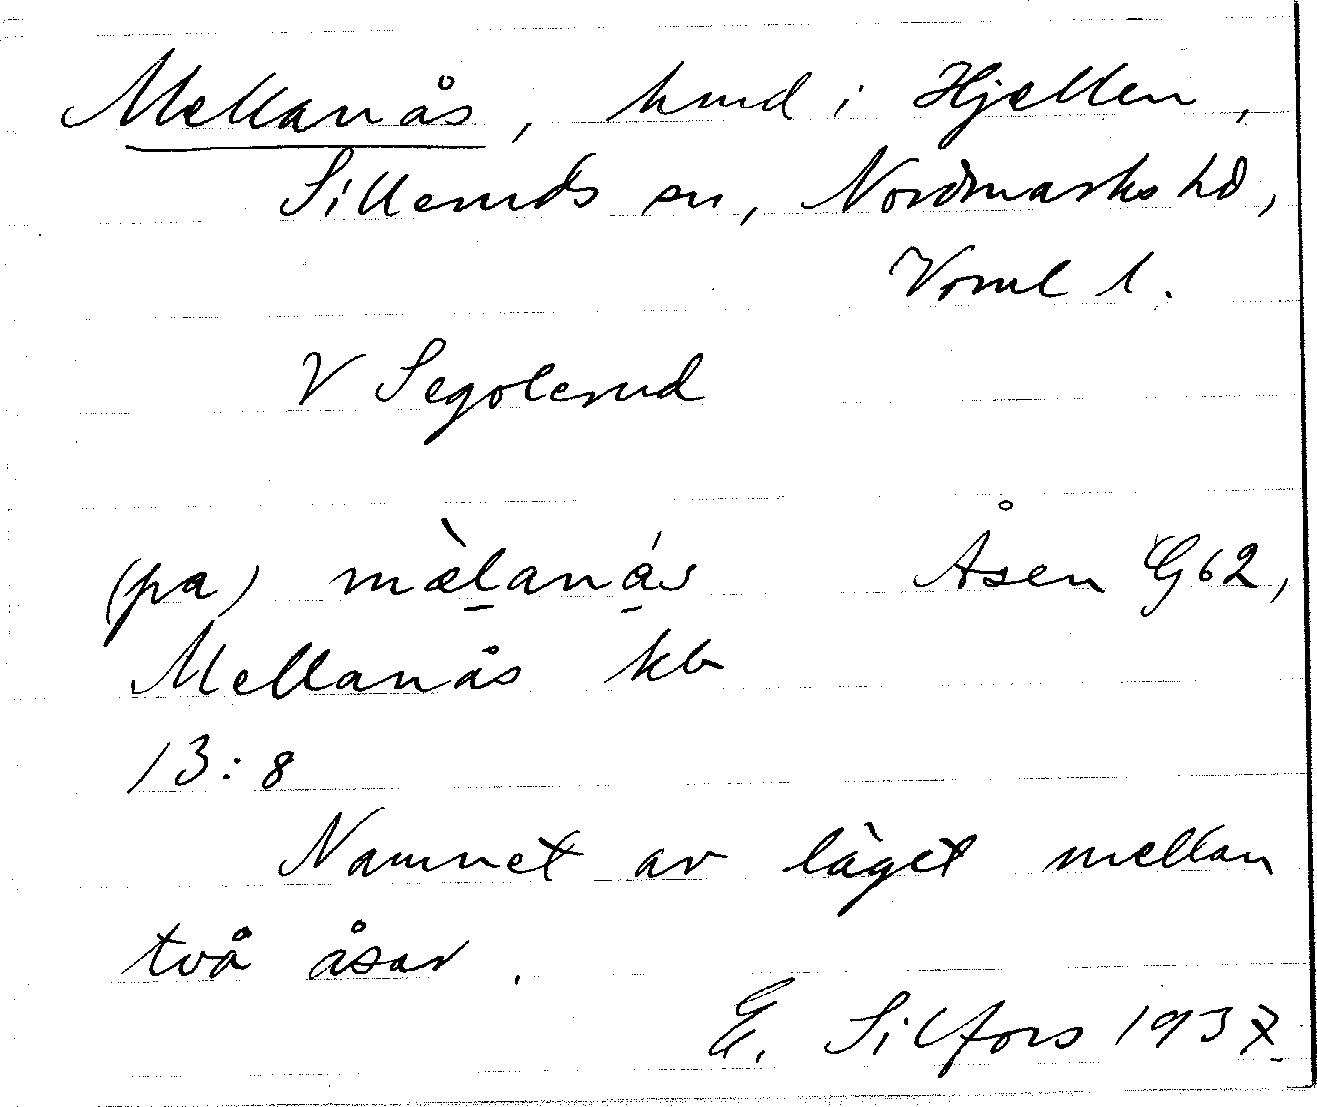 Mellanås, hmd i Hjällen,
Silleruds sn, Nordmarks hd,
Vrml l.
V Segolerud
(pa) mæ̀lanás Åsen G62,
Mellanås kb
13:8
Namnet av läget mellan
två åsar.
E. Silfors 1937